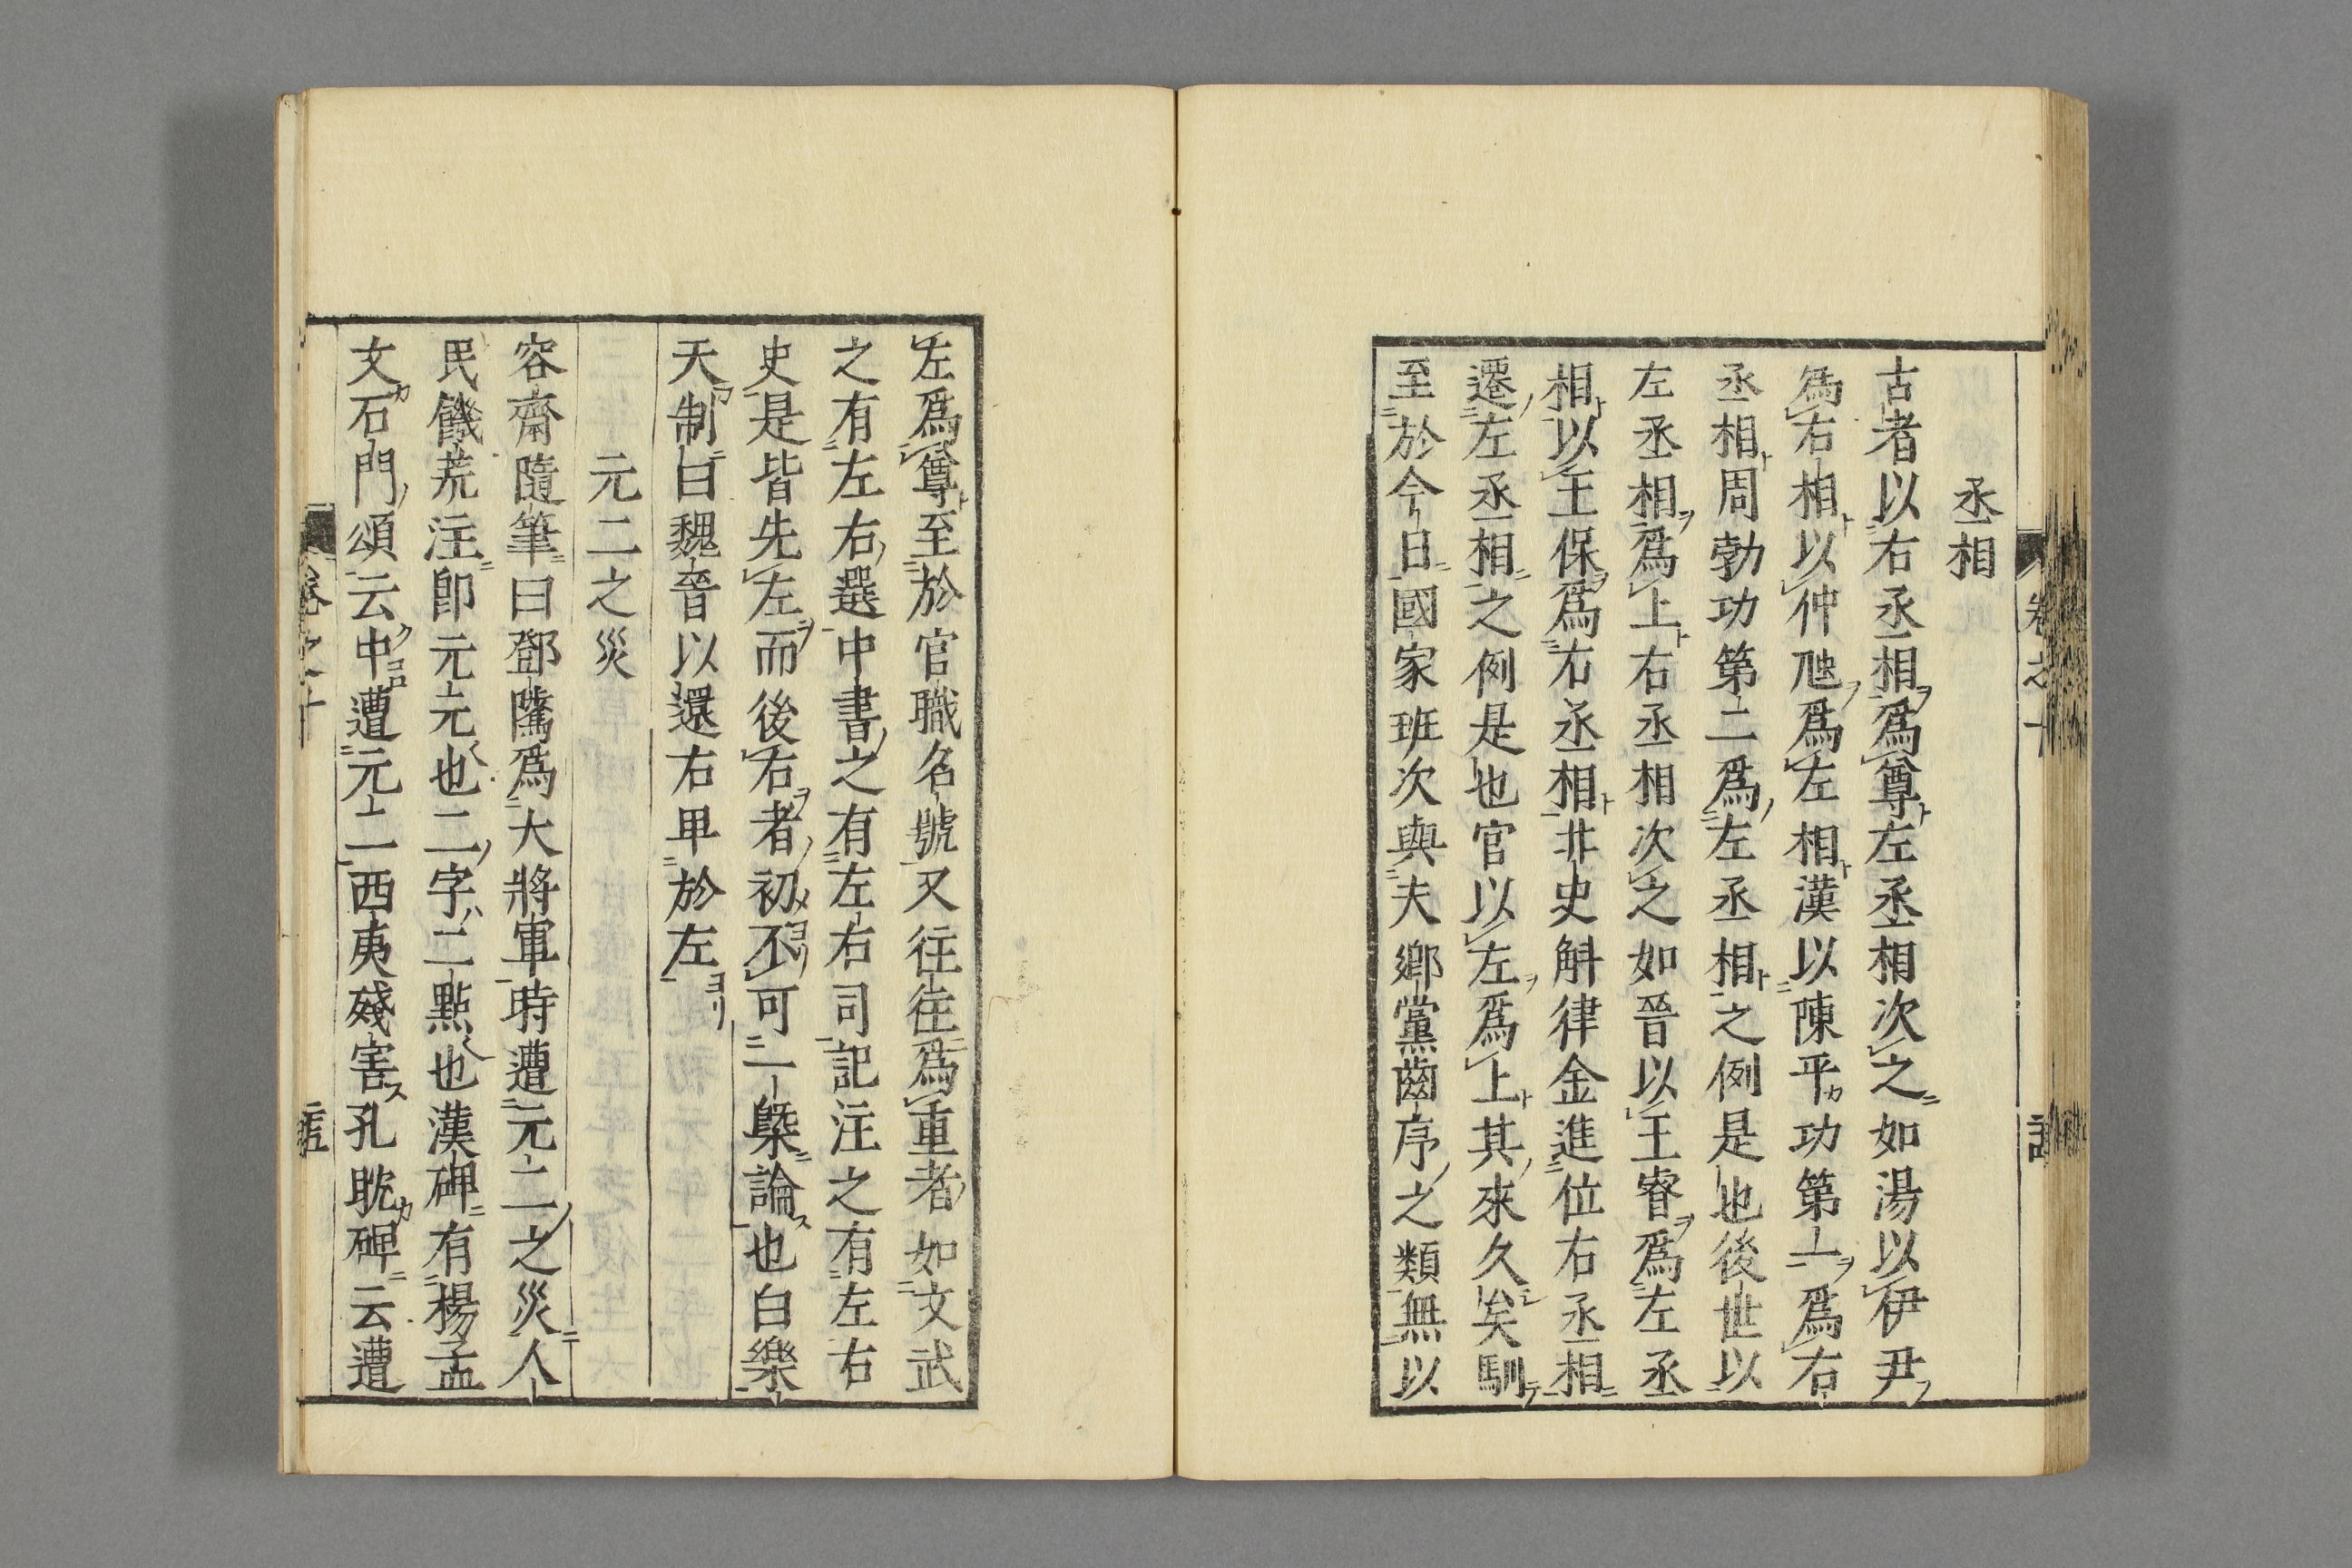 丞相
古者以右丞相爲尊左丞相次之如湯以伊尹
爲右相以仲虺爲左相漢以陳平功第一爲右
丞相周勃功第二爲左丞相之例是也後世以
左丞相爲上右丞相次之如晉以王睿爲左丞
相以王保爲右丞相非史斛律金進位右丞相
遷左丞相之例是也官以左爲上其來久矣馴
至於今日國家班次與夫鄉黨齒序之類無以
左爲尊至於官職名號又往往爲重者如文武
之有左右選中書之有左右司記注之有左右
史是皆先左而後右者初不可一槩論也白樂
天制曰魏晉以還右卑於左
元二之災
容齋隨筆曰鄧隲爲大將軍時遭元二之災人
民饑荒注卽元元也二字二點也漢碑有楊孟
文石門頌云中遭元二西夷殘害孔耽碑云遭
卷之十